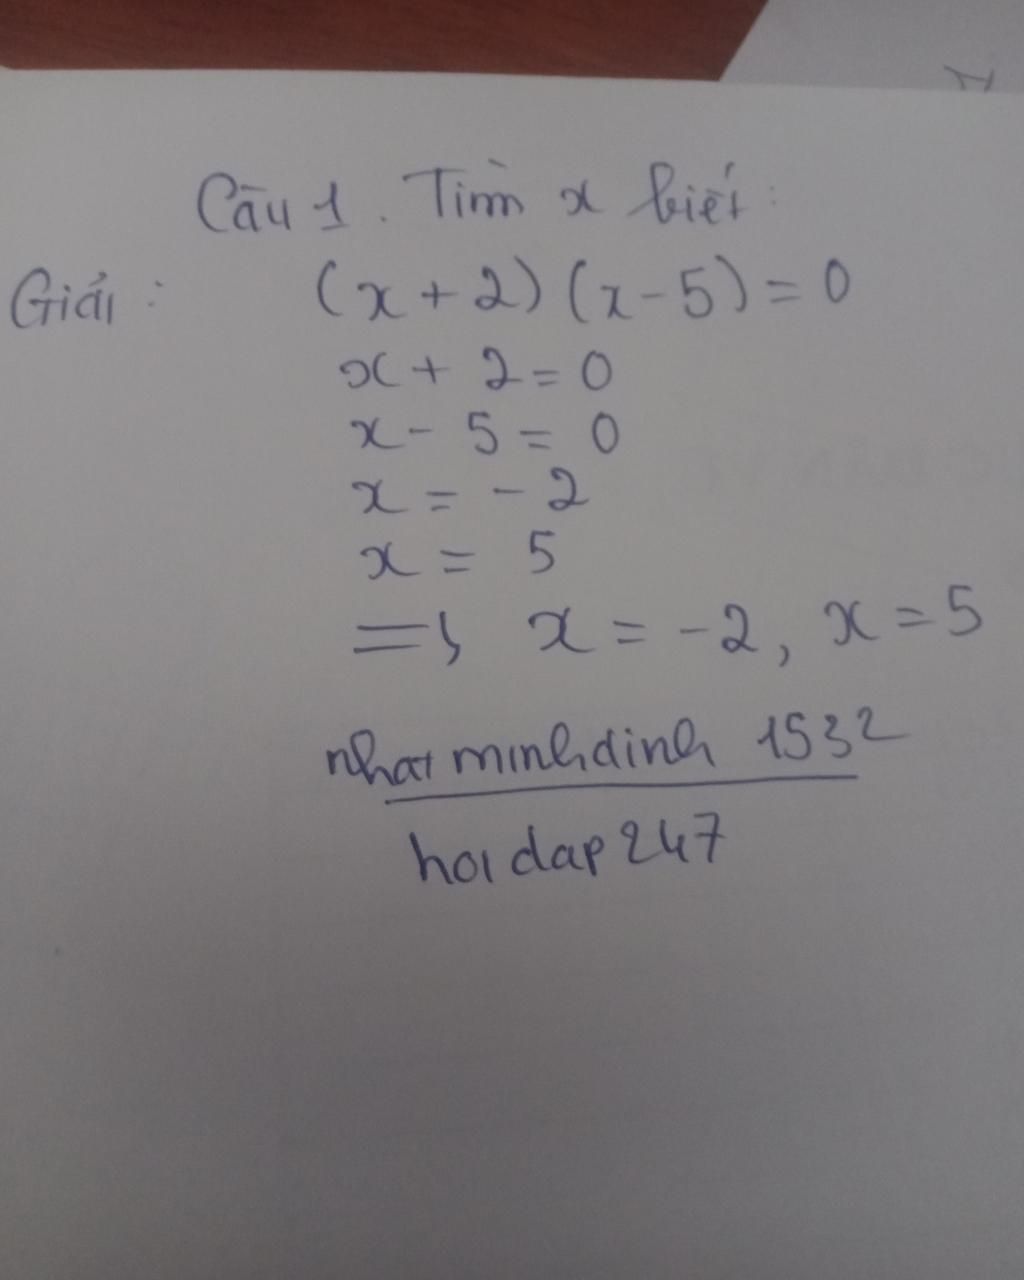 Câu 1. Tìm x biết:
Giải: (x + 2) (x - 5) = 0
x + 2 = 0
x - 5 = 0
x = - 2
x = 5
=> x = -2, x = 5
nhat minhdinh 1532
hoidap247